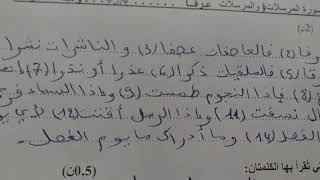 سورة المرسلات ( والمرسلات عرفا
(2ن)
رفا(2) فالعاصفات عصفا(3) و الناشرات نشرا
رقا(5) فالملقيات ذكرا(6) عذرا أو نذرا(7)
(8) فإذا النجوم طمست(9) وإذا السماء فر
ال نسفت(11) وإذا الرسل أقتت(12) لأي يو
الفصل(14) وما أدراك ما يوم الفصل.
تي تقرأ بها الكلمتان: (0.5ن)